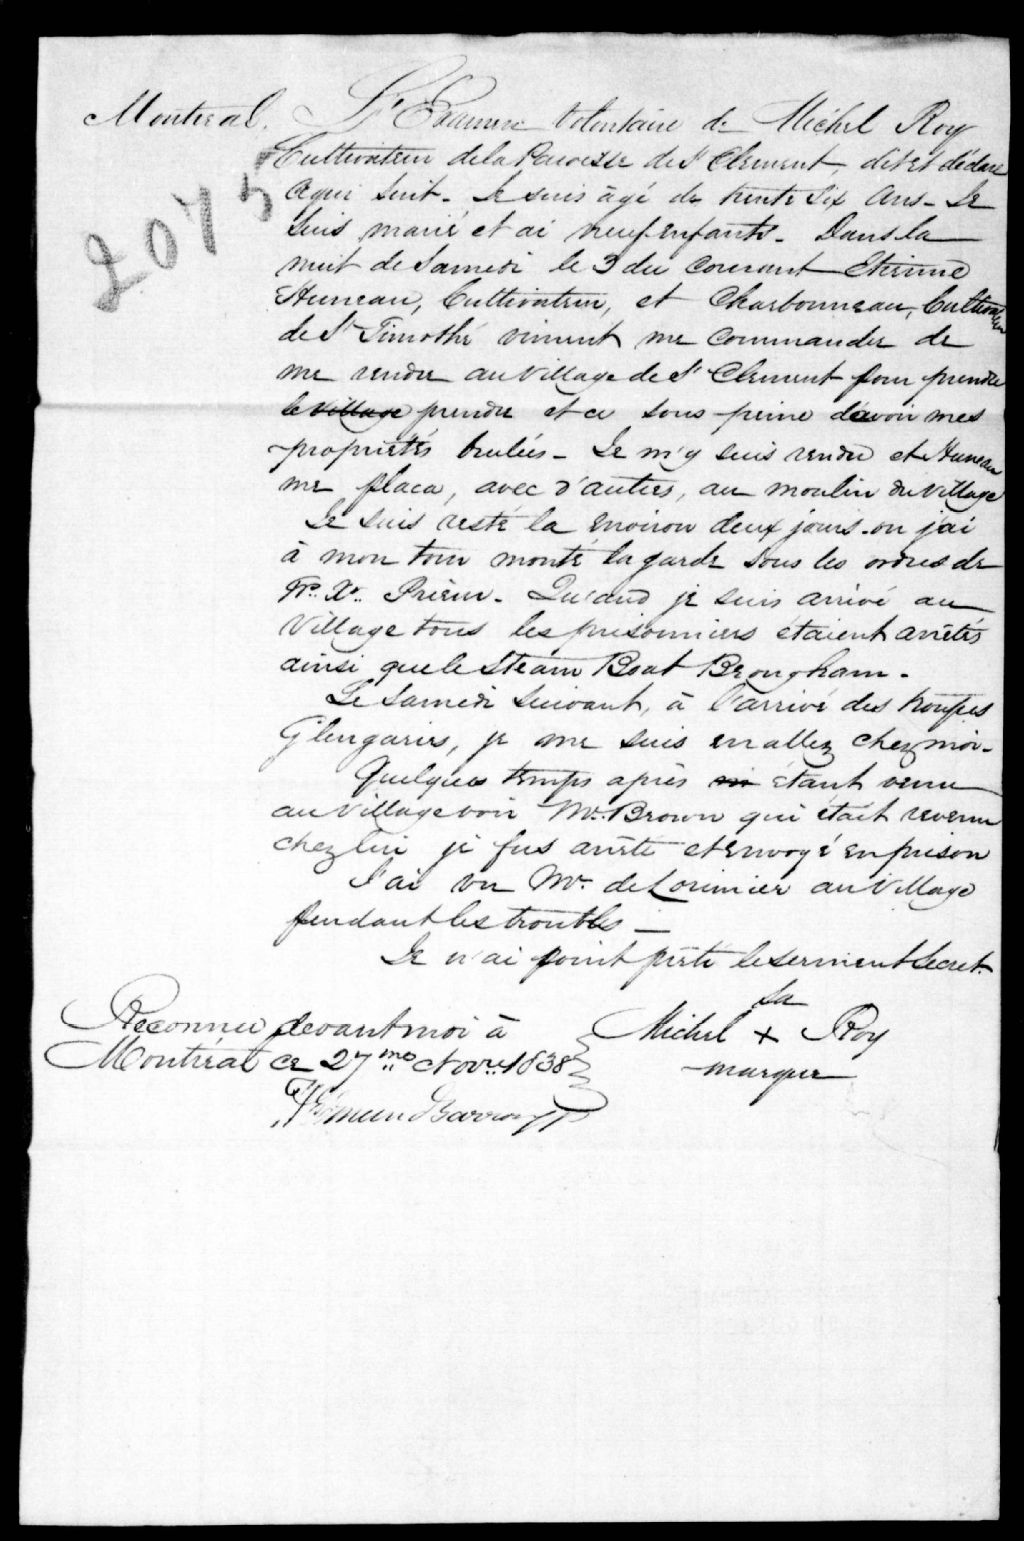 Montréal. L'Examen Volontaire de Michel Roy
Cultivateur de la Paroisse de St Clement, dit et déclare
2075
ce qui suit. Je suis âgé de trente six ans. Je
suis marié et ai neuf enfants. Dans la
nuit de Samedi le 3 du courant Etienne
Huneau, Cultivateur, et Charbonneau, Cultivateur
de St Timothé vinrent me commander de
me rendre au Village de St Clement pour prendre
le Village prendre et ce sous peine d'avoir mes
propriétés brulées. Je m'y suis rendu et Huneau
me placa, avec d'autres, au moulin du Village
Je suis resté la environ deux jours. ou j'ai
à mon tour monté la garde sous les ordres de
Fr. Xr. Prieur. Quand je suis arrivé au
Village tous les prisonniers étaient arrêtés
ainsi que le Steam Boat Brougham.
Le Samedi suivant, à l'arrivé des troupes
Glengaries, je me suis en allez chez moi.
Quelques temps après étant venu
au Village voir Mr. Brown qui était revenu
chez lui je fus arrêté et envoyé en prison
J'ai vu Mr. de Lorimier au Village
pendant les troubles —
Je n'ai point prêté le serment secret.
Reconnu devant moi à
Montréal ce 27me Novr. 1838
sa
Michel + Roy
marque